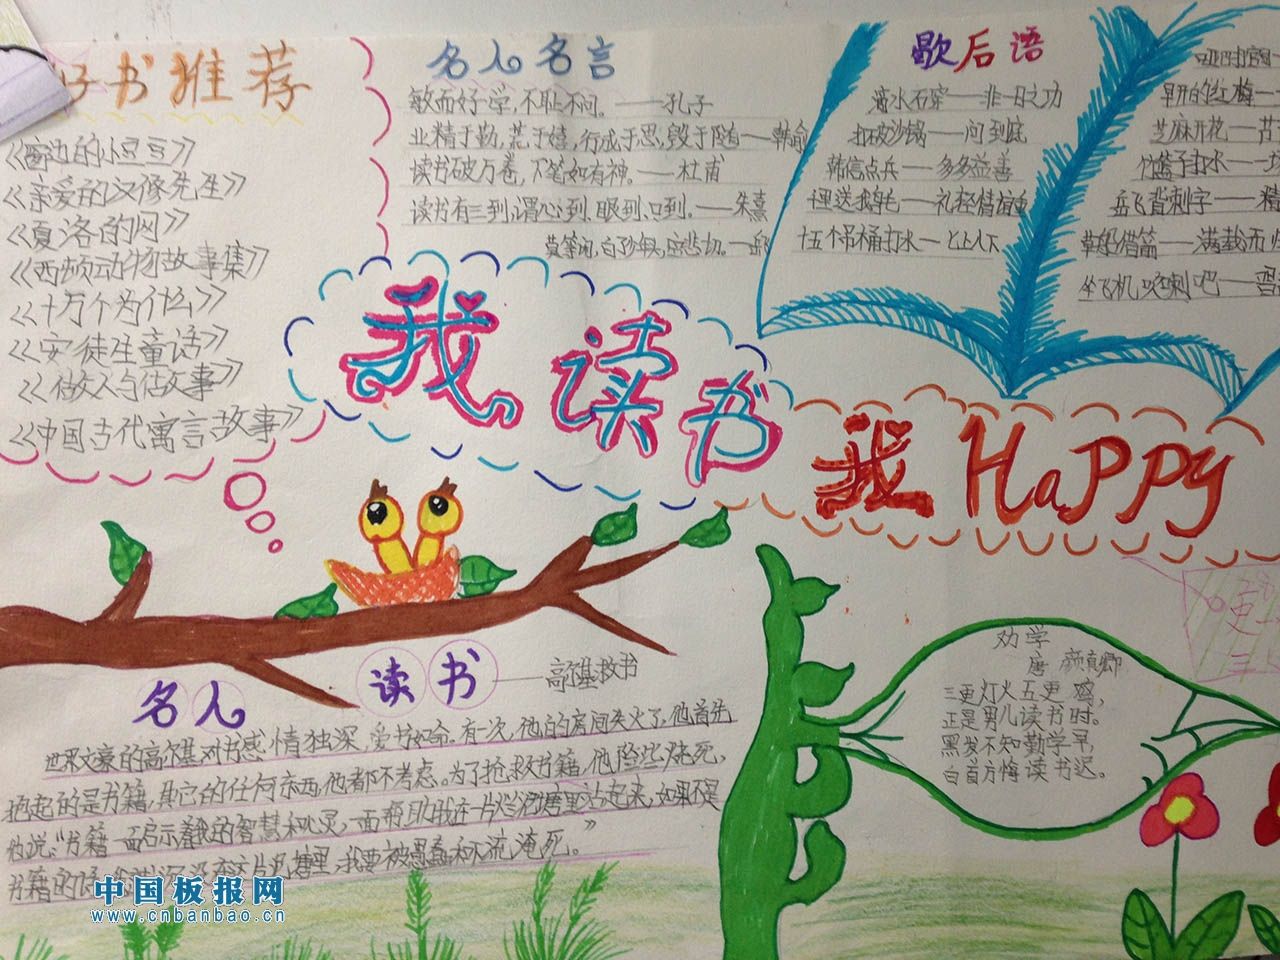 好书推荐
《窗边的小豆豆》
《亲爱的汉修先生》
《夏洛的网》
《西顿动物故事集》
《十万个为什么》
《安徒生童话》
《中国古代寓言故事》
名人名言
敏而好学,不耻下问。——孔子
业精于勤,荒于嬉,行成于思,毁于随——韩愈
读书破万卷,下笔如有神。——杜甫
读书有三到,谓心到,眼到,口到。——朱熹
歇后语
滴水石穿——非一日之功
打破沙锅——问到底
韩信点兵——多多益善
千里送鹅毛——礼轻情谊重
十五个吊桶打水——七上八下
芝麻开花——
竹篮子打水——
岳飞背刺字——精
草船借箭——满载而
坐飞机吹喇叭——
我读书
我 HaPPy
名人读书——高尔基救书
世界文豪的高尔基对书感情独深,爱书如命。有一次,他的房间失火了,他首先
抱起的是书籍,其它的任何东西,他都不考虑。为了抢救书籍,他险些烧死,
他说:“书籍一面启示着我的智慧和心灵,一面帮助我在一片烂泥塘里站起来,如果不是
书籍的话,我要被愚蠢和下流淹死。”
劝学
唐 颜真卿
三更灯火五更鸡,
正是男儿读书时。
黑发不知勤学早,
白首方悔读书迟。
中国板报网
www.cnbanbao.cn